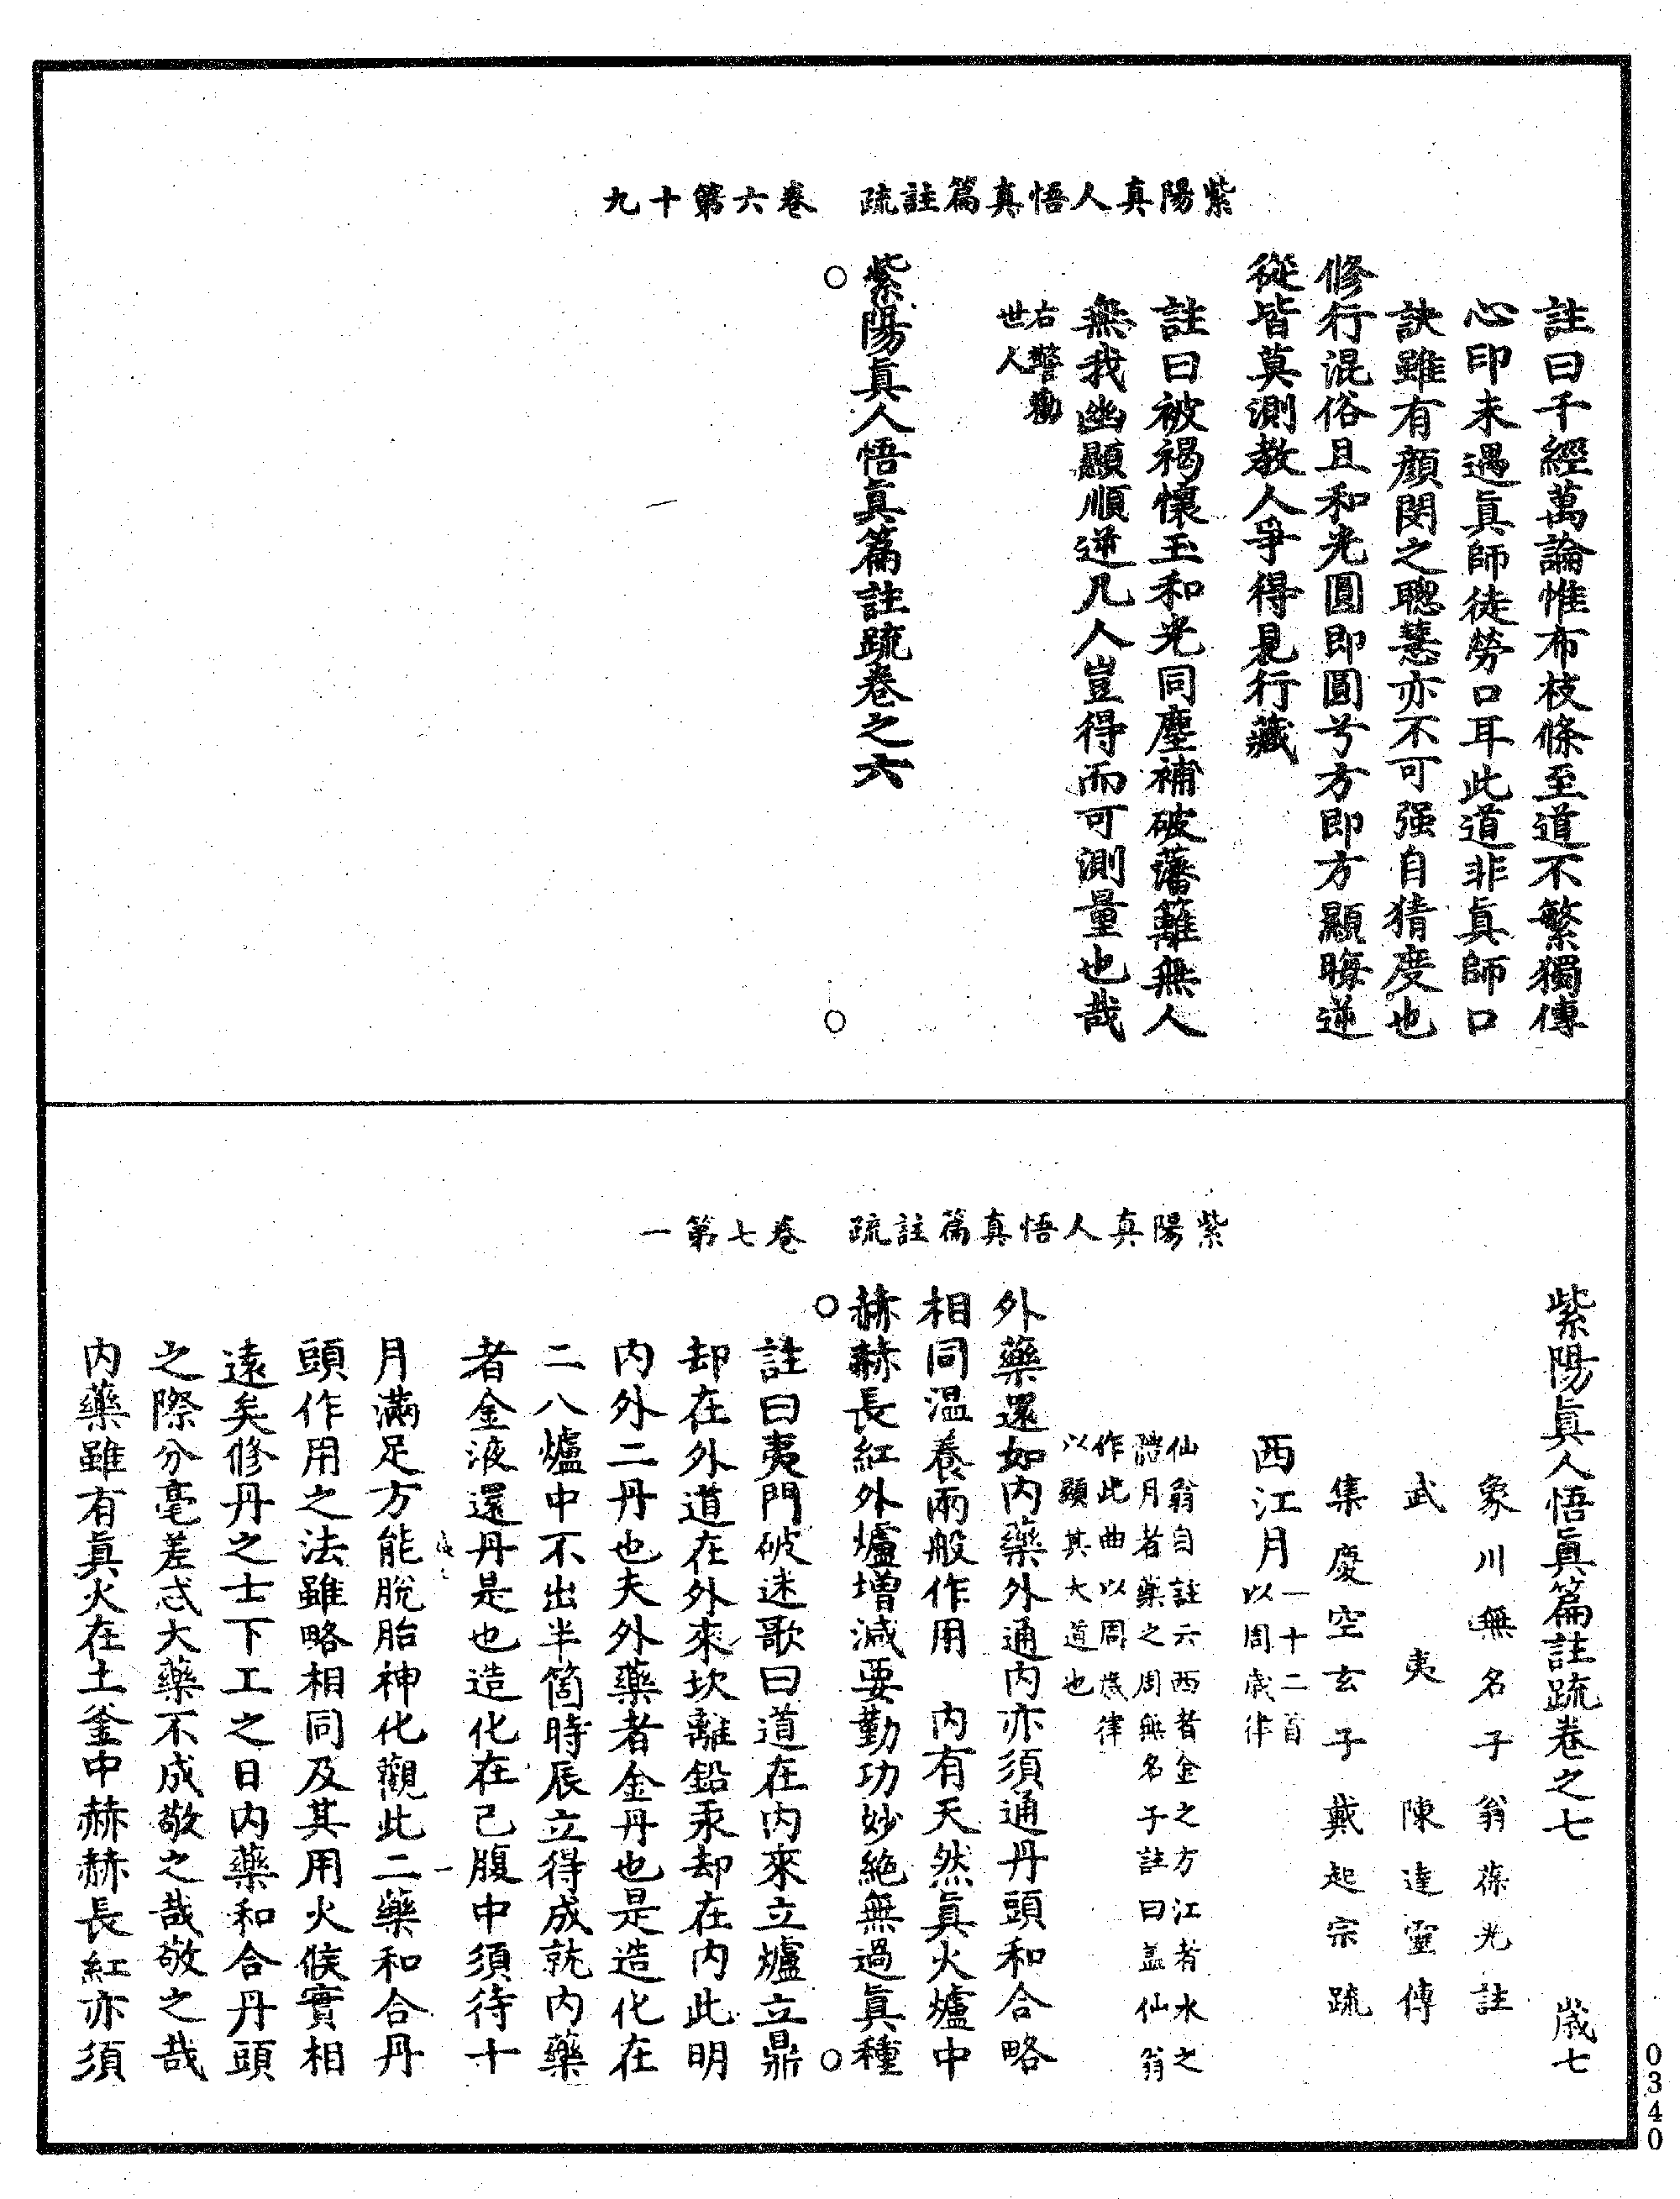 紫陽真人悟真篇註疏　卷六第十九
註曰千經萬論惟布枝條至道不繁獨傳
心印未遇眞師徒勞口耳此道非眞師口
訣雖有顏閔之聰慧亦不可强自猜度也
修行混俗且和光圓即圓兮方即方顯晦逆
從皆莫測教人爭得見行藏
註曰被褐懷玉和光同塵補破藩籬無人
無我幽顯順逆凡人豈得而可測量也哉
右警勸
世人
紫陽眞人悟眞篇註疏卷之六
紫陽真人悟真篇註疏　卷七第一
紫陽眞人悟眞篇註疏卷之七　歲七
象川無名子翁葆光註
武夷陳達靈傳
集慶空玄子戴起宗疏
西江月一十二首
以周歲律
仙翁自註云西者金之方江者水之
體月者藥之周無名子註曰盖仙翁
作此曲以周歲律
以顯其大道也
外藥還如內藥外通內亦須通丹頭和合略
相同温養兩般作用　內有天然眞火爐中
赫赫長紅外爐增減要勤功妙絶無過眞種
註曰夷門破迷歌曰道在內來立爐立鼎
却在外道在外來坎離鉛汞却在內此明
內外二丹也夫外藥者金丹也是造化在
二八爐中不出半箇時辰立得成就內藥
者金液還丹是也造化在己腹中須待十
月滿足方能脫胎神化觀此二藥和合丹
頭作用之法雖略相同及其用火候實相
遠矣修丹之士下工之日內藥和合丹頭
之際分毫差忒大藥不成敬之哉敬之哉
內藥雖有眞火在土釜中赫赫長紅亦須
0340